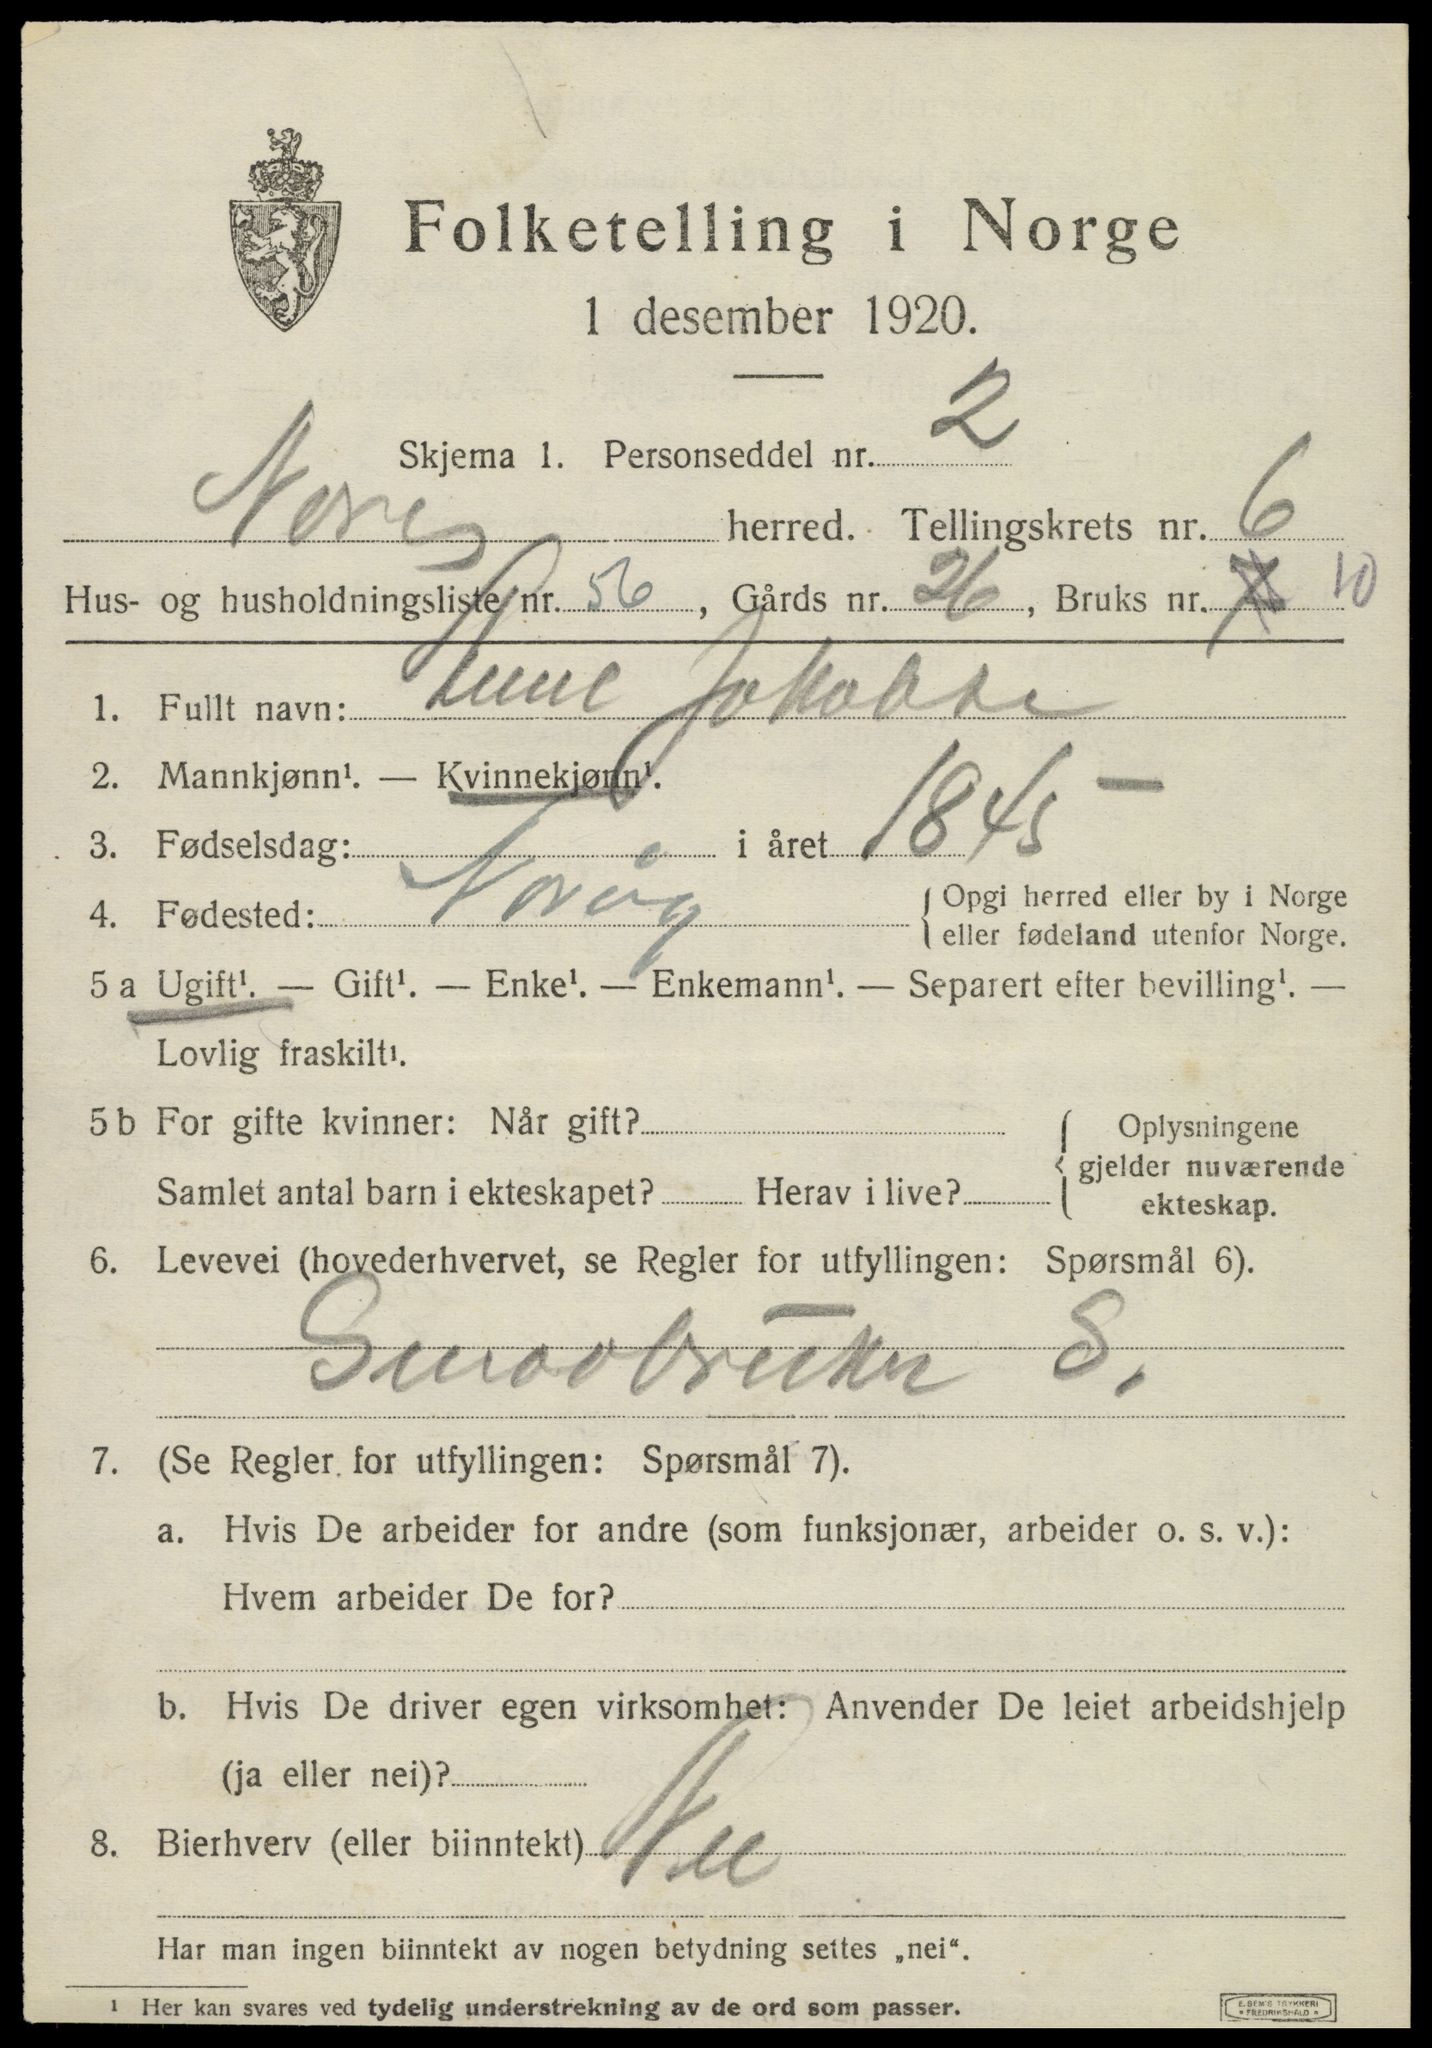 Folketelling i Norge
1 desember 1920.
Skjema 1. Personseddel nr. 2
herred. Tellingskrets nr. 6
Hus- og husholdningsliste nr. 56, Gårds nr. 26, Bruks nr. 10
1. Fullt navn: Jakobse
2. Mannkjønn¹. — Kvinnekjønn¹.
3. Fødselsdag: i året 1845 —
4. Fødested: {Opgi herred eller by i Norge
eller fødeland utenfor Norge.
5 a Ugift¹. — Gift¹. — Enke¹. — Enkemann¹. — Separert efter bevilling¹. —
Lovlig fraskilt¹.
5 b For gifte kvinner: Når gift? { Oplysningene
gjelder nuværende
Samlet antal barn i ekteskapet? Herav i live? ekteskap.
6. Levevei (hovederhvervet, se Regler for utfyllingen: Spørsmål 6).
Smaabruker S.
7. (Se Regler for utfyllingen: Spørsmål 7).
a. Hvis De arbeider for andre (som funksjonær, arbeider o. s. v.):
Hvem arbeider De for?
b. Hvis De driver egen virksomhet: Anvender De leiet arbeidshjelp
(ja eller nei)?
8. Bierhverv (eller biinntekt) Nei
Har man ingen biinntekt av nogen betydning settes „nei“.
¹ Her kan svares ved tydelig understrekning av de ord som passer.
E. SEM'S TRYKKERI
FREDRIKSHALD